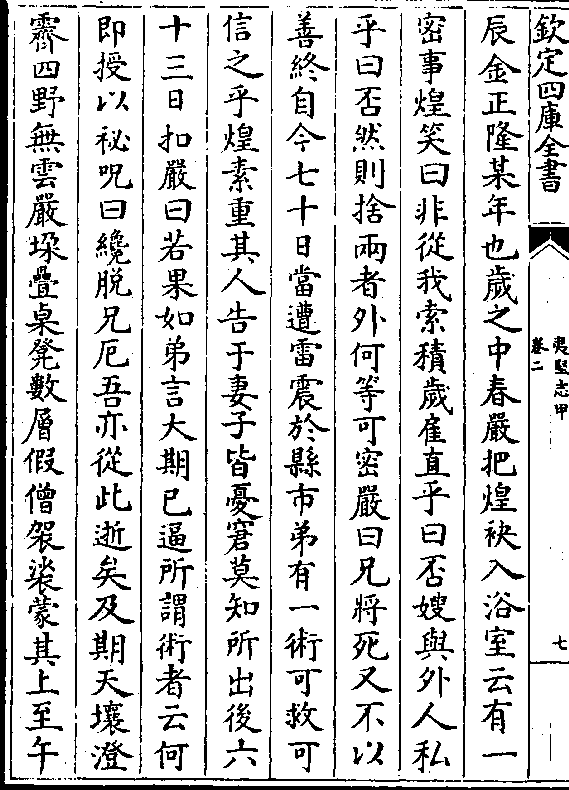 欽定四庫全書
夷堅志甲
卷二
七
辰金正隆某年也歲之中春嚴把煌袂入浴室云有一
密事煌笑曰非從我索積歲雇直乎曰否嫂與外人私
乎曰否然則捨兩者外何等可密嚴曰兄將死又不以
善終自今七十日當遭雷震於縣市弟有一術可救可
信之乎煌素重其人告于妻子皆憂窘莫知所出後六
十三日扣嚴曰若果如弟言大期已逼所謂術者云何
即授以祕呪曰纔脫兄厄吾亦從此逝矣及期天壤澄
霽四野無雲嚴垜疊桌凳數層假僧袈裟蒙其上至午